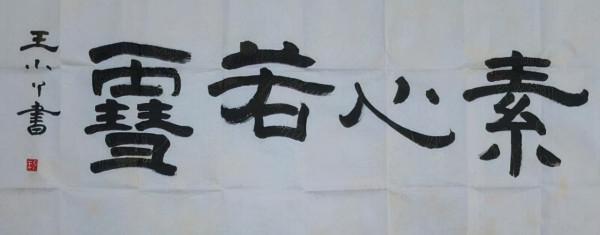 素心若雪
王小川書